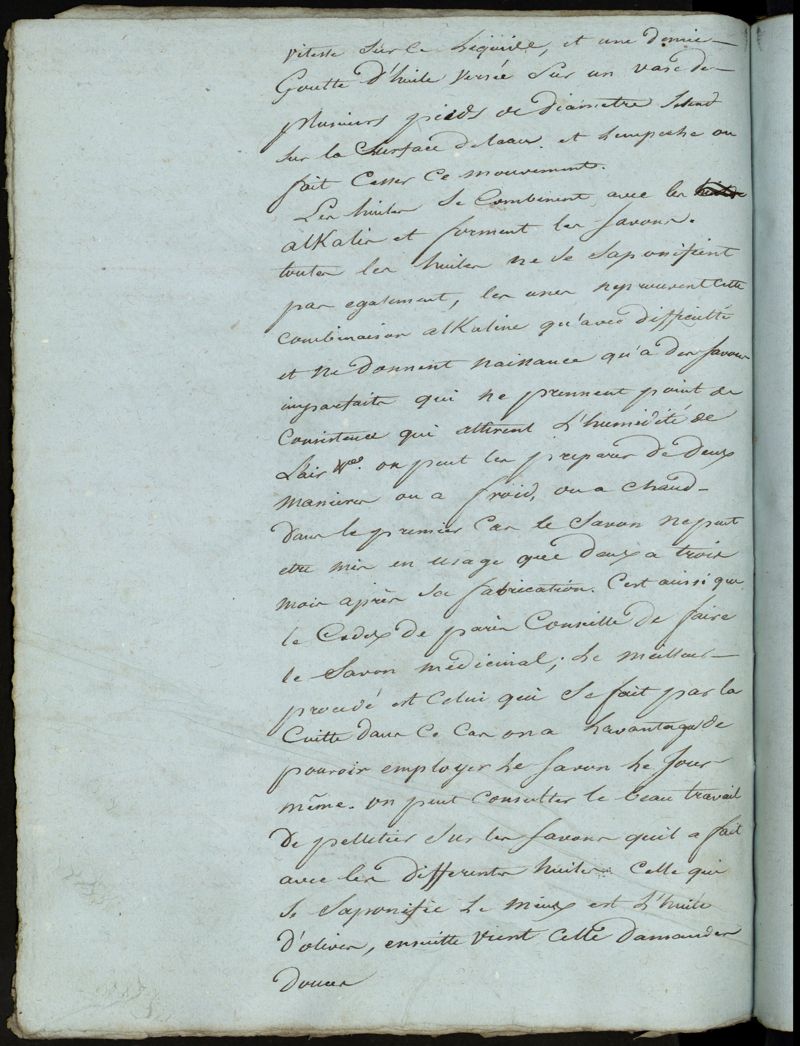 vitesse sur le Liquide, et une demie-
Goutte d'huile versée sur un vase de
plusieurs pieds de diametre S'etend
sur la Surface de l'eau. et L'empeche ou
fait Cesser Ce mouvement.
Les huiles Se Combinent avec les
alKalis et forment les Savons.
toutes les huiles ne Se Saponifient
pas egalement, les unes n'eprouvent Cette
Combinaison alKaline qu'avec difficulté
et Ne donnent naissance qu'a des Savons
imparfaits qui ne prennent point de
Consistence qui attirent L'humidité de
L'air &c. on peut les preparer de deux
manieres ou a froid, ou a chaud-
dans le premier Cas le Savon ne peut
etre mis en usage que deux a trois
mois après Sa fabrication. C'est aussi que
le Codex de paris Conseille de faire
le Savon medicinal; Le meilleur-
procédé est Celui qui Se fait par la
Cuitte dans Ce Cas on a L'avantage de
pouvoir employer Le Savon Le Jour-
même. on peut Consulter le beau travail
de pelletier Sur les Savons qu'il a fait
avec les differentes huiles. Celle qui
Se Saponifie Le mieux est L'huile
d'olives, ensuitte vient Celle d'amandes
douces